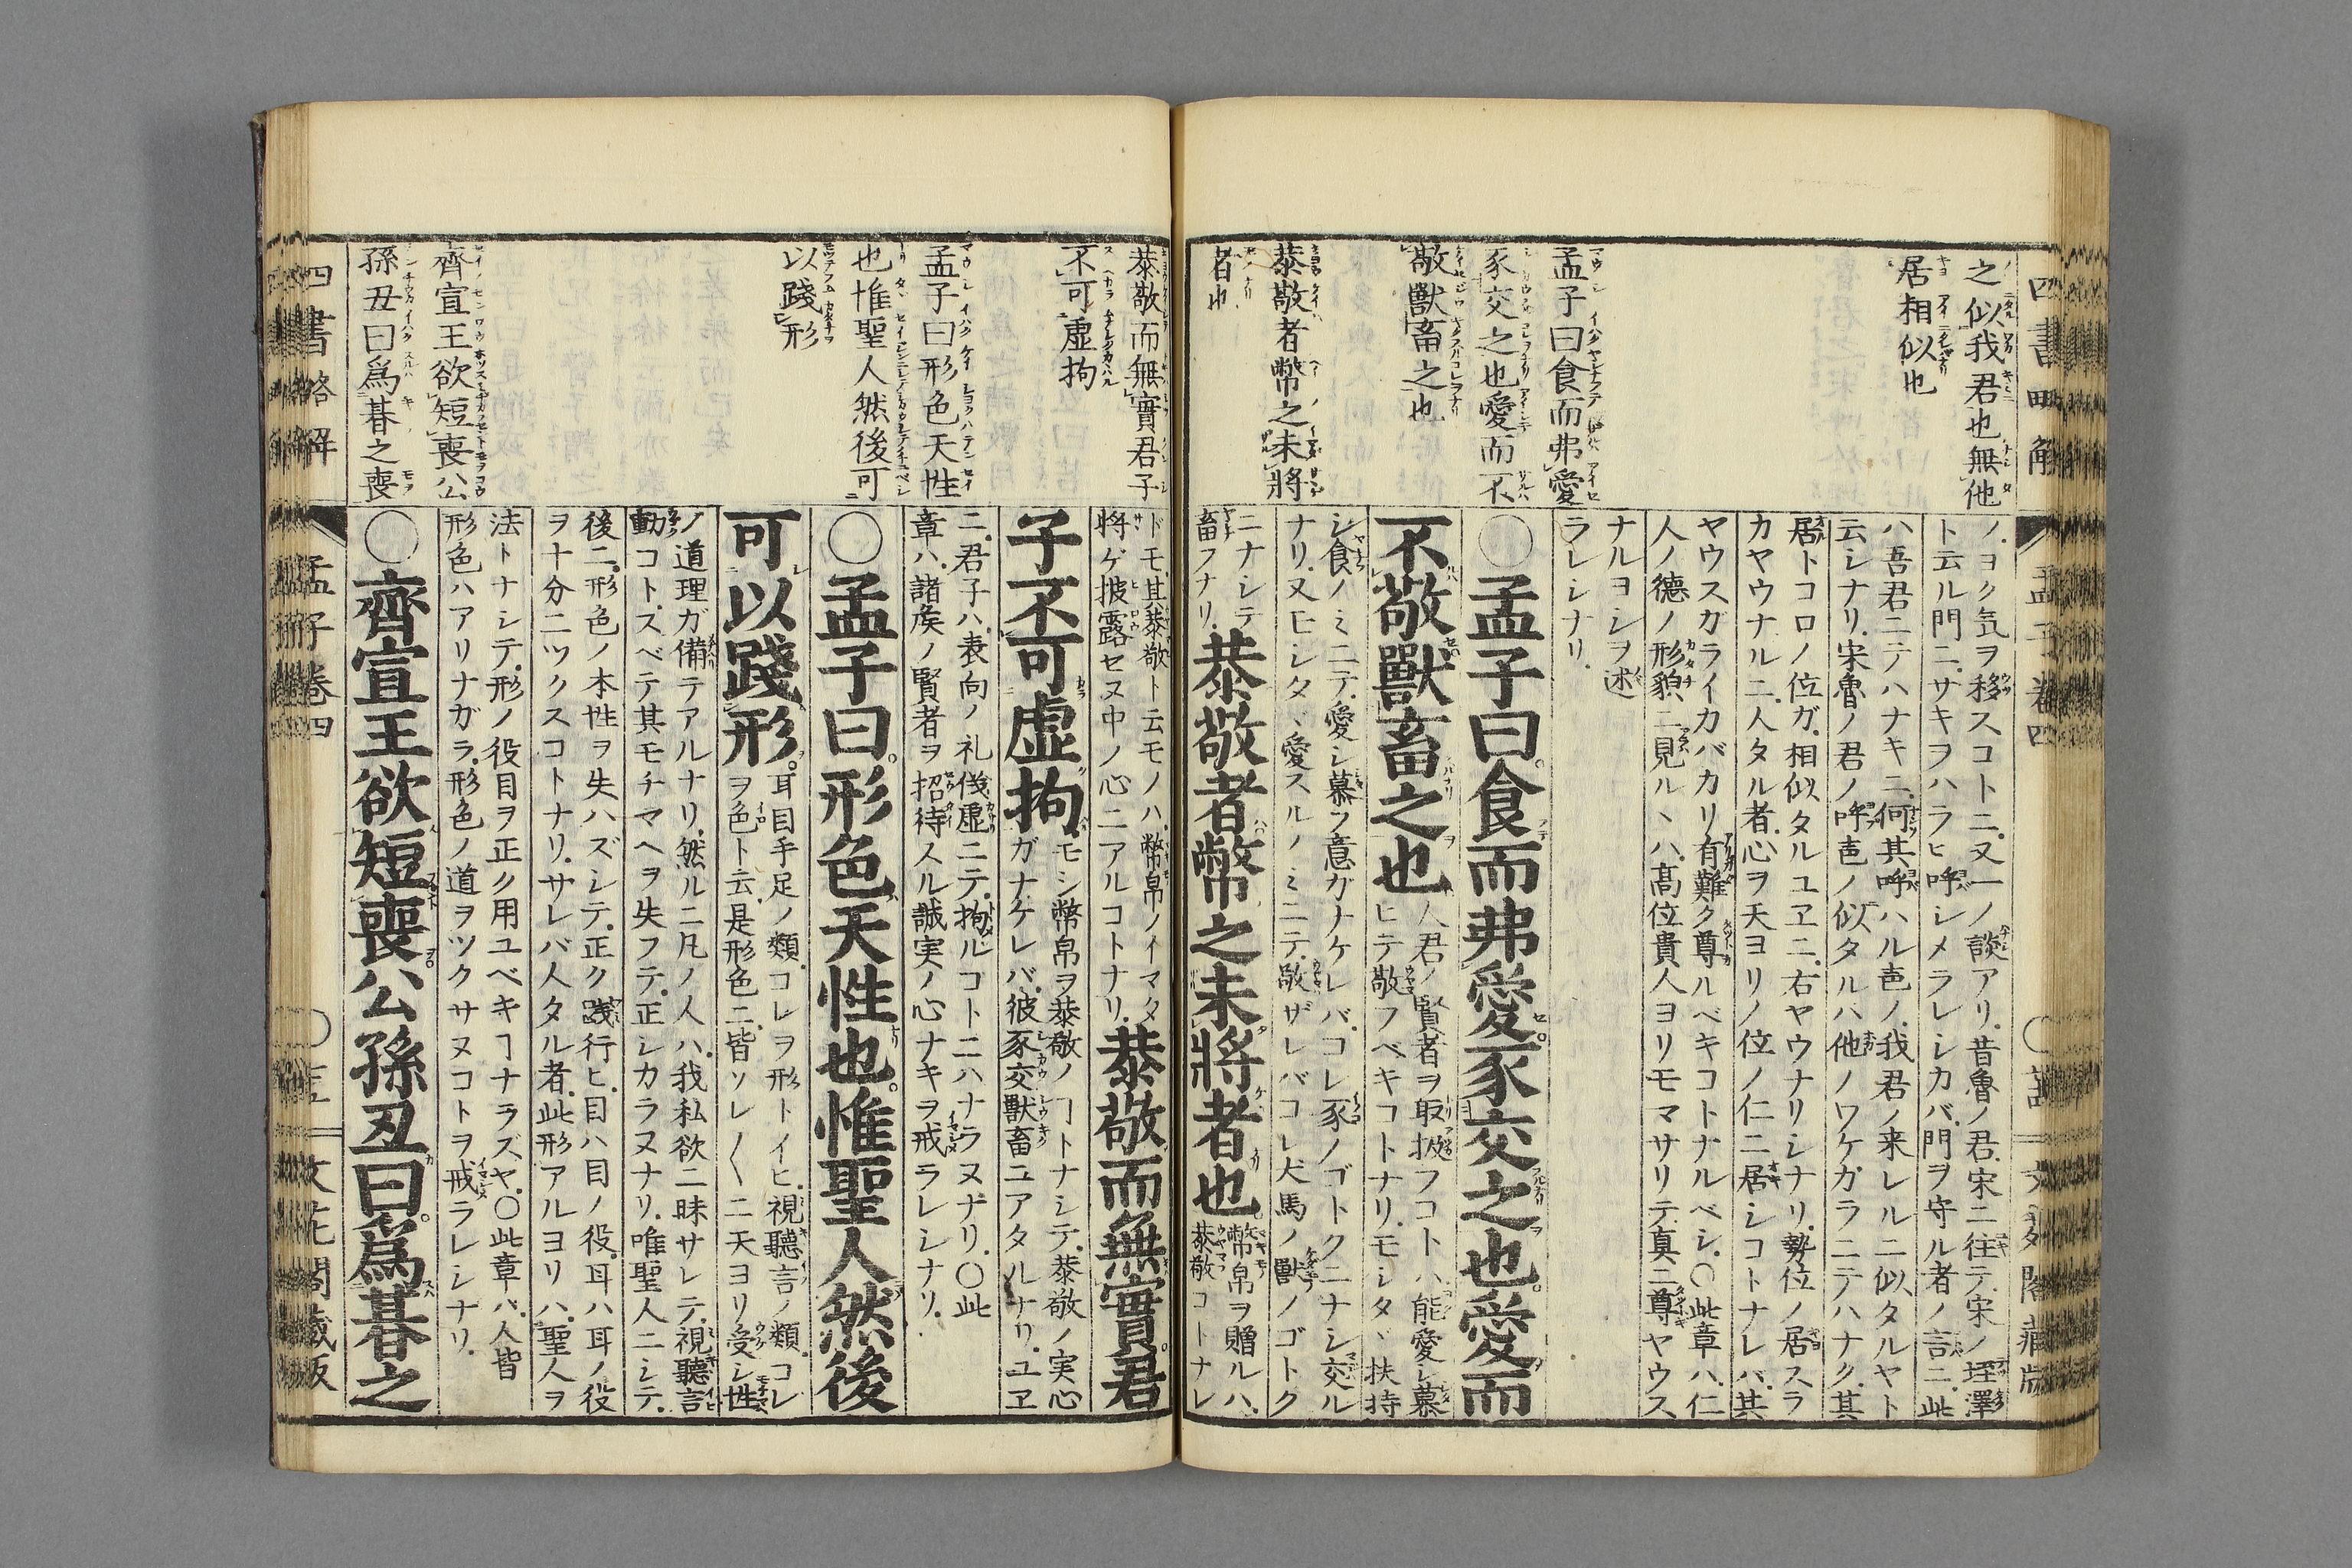 四書略解
孟子卷四
之似我君也無他
居相似也
孟子曰食而弗愛
豕交之也愛而不
敬獸畜之也
恭敬者幣之未將
者也
ノ、ヨク気ヲ移スコトニ、又一ノ談アリ、昔魯ノ君、宋ニ往テ、宋ノ垤澤
ト云ル門ニ、サキヲハラヒ呼シメラレシカバ、門ヲ守ル者ノ言ニ、此
ハ吾君ニテハナキニ、何其呼ハル声ノ、我君ノ来レルニ似タルヤト
云シナリ、宋魯ノ君ノ呼声ノ似タルハ他ノワケガラニテハナク、其
居トコロノ位ガ、相似タルユヱニ、右ヤウナリシナリ、勢位ノ居スラ
カヤウナルニ、人タル者、心ヲ天ヨリノ位ノ仁ニ居シコトナレバ、其
ヤウスガライカバカリ有難ク尊ルベキコトナルベシ、○此章ハ、仁
人ノ徳ノ形貌ニ見ルヽハ、高位貴人ヨリモマサリテ、真ニ尊ヤウス
ナルヨシヲ述
ラレシナリ、
○孟子曰。食而弗愛。豕交之也。愛而
不敬獸畜之也
人君ノ賢者ヲ取扱フコト、能愛シ慕
ヒテ敬フベキコトナリ、モシタヽ扶持
シ食ノミニテ、愛シ慕フ意ガナケレバ、コレ豕ノゴトクニナシ交ル
ナリ、又モシタヽ愛スルノミニテ、敬ザレバコレ犬馬ノ獸ノゴトク
ニナシテ
畜フナリ、
恭敬者幣之未將者也
幣帛ヲ贈ルハ、
恭敬コトナレ
恭敬而無實君子
不可虚拘
孟子曰形色天性
也惟聖人然後可
以踐形
齊宣王欲短喪公
孫丑曰爲朞之喪
ドモ、其恭敬ト云モノハ、幣帛ノイマタ
將ゲ披露セヌ中ノ心ニアルコトナリ、
恭敬而無實。君
子不可虚拘
モシ幣帛ヲ恭敬ノヿトナシテ、恭敬ノ実心
ガナケレバ、彼豕交獸畜ユアタルナリ、ユヱ
ニ、君子ハ、表向ノ礼儀虚ニテ、拘ルコトニハナラヌナリ、○此
章ハ、諸矦ノ賢者ヲ招待スル、誠実ノ心ナキヲ戒ラレシナリ、
○孟子曰。形色天性也。惟聖人然後
可以踐形。
耳目手足ノ類、コレヲ形トイヒ、視聽言ノ類、コレ
ヲ色ト云、是形色ニ、皆ソレ〳〵ニ天ヨリ受シ性
ノ道理ガ備テアルナリ、然ルニ凡ノ人ハ、我私欲ニ昧サレテ、視聽言
動コト、スベテ其モチマヘヲ失フテ、正シカラヌナリ、唯聖人ニシテ、
後ニ、形色ノ本性ヲ失ハズシテ、正ク踐行ヒ、目ハ目ノ役、耳ハ耳ノ役
ヲ十分ニツクスコトナリ、サレバ人タル者、此形アルヨリハ、聖人ヲ
法トナシテ、形ノ役目ヲ正ク用ユベキヿナラズヤ、○此章ハ、人皆
形色ハアリナガラ、形色ノ道ヲツクサヌコトヲ戒ラレシナリ、
○齊宣王欲短喪。公孫丑曰。爲朞之
四書略解
孟子卷四
文花閣藏版